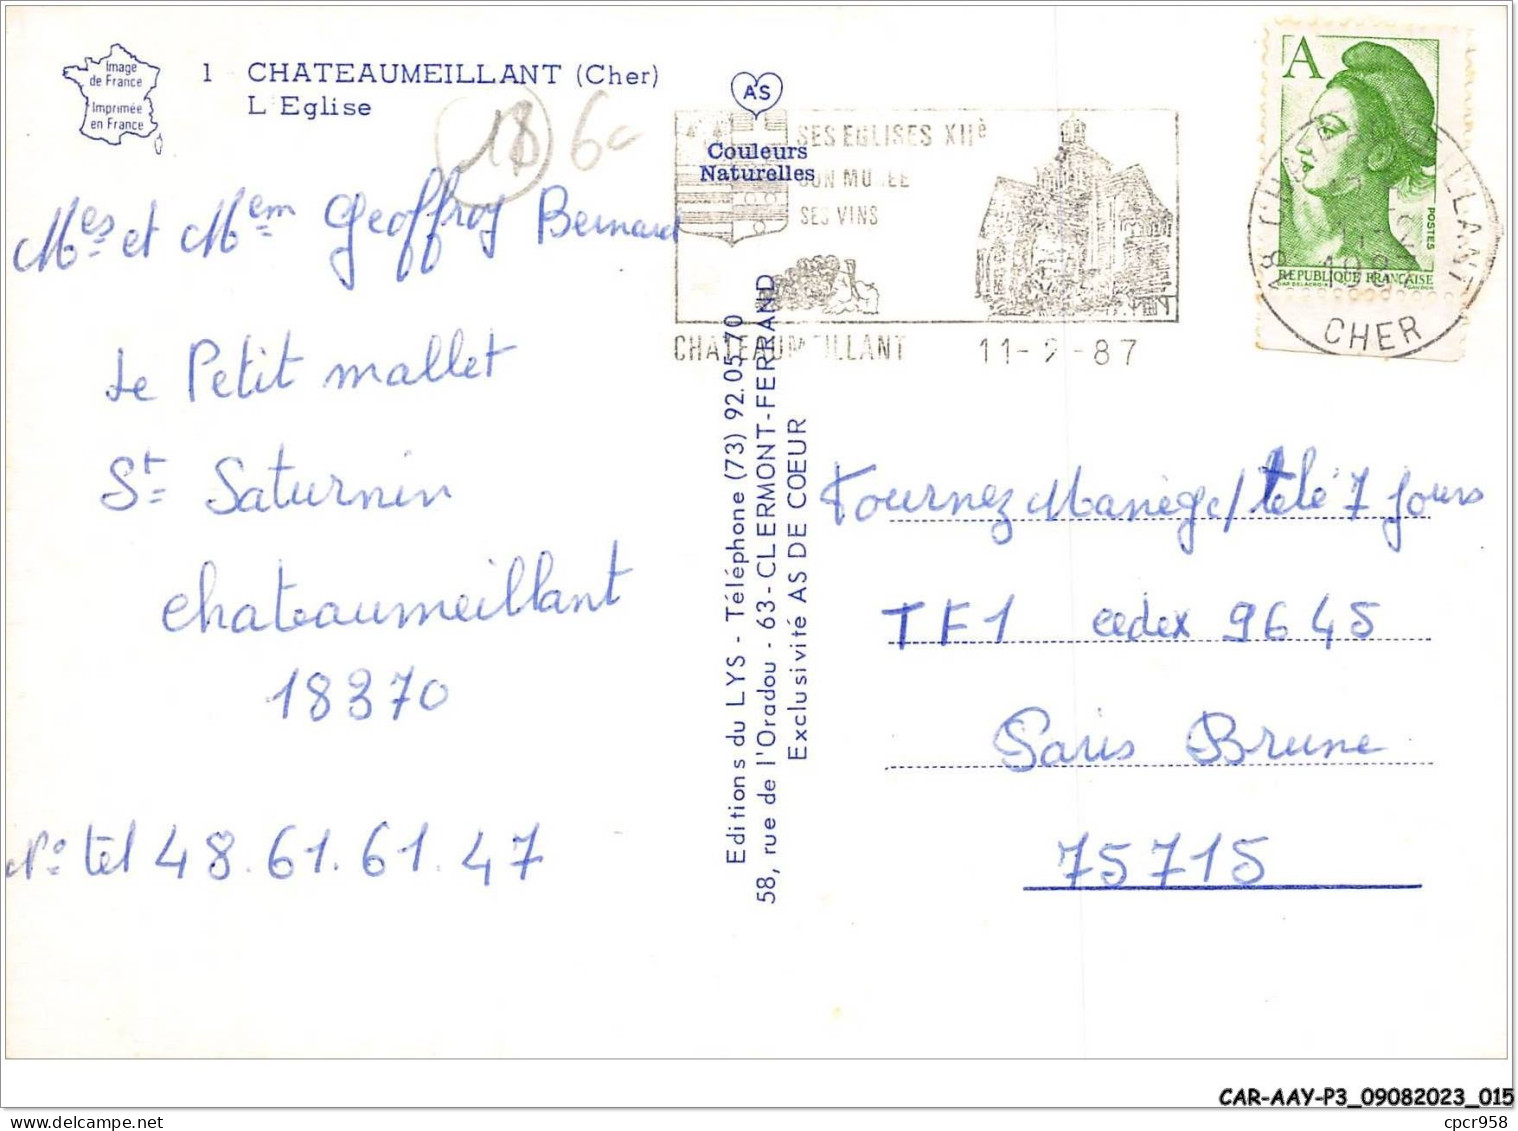 Image
de France
Imprimée
en France
1 CHATEAUMEILLANT (Cher)
L'Eglise
18 6c
AS
Couleurs
Naturelles
SES EGLISES XIIè
SON MUSEE
SES VINS
CHATEAUMEILLANT 11-2-87
A
POSTES
REPUBLIQUE FRANÇAISE
18 CHATEAUMEILLANT
CHER
Mes et Mem Geoffroy Bernard
Le Petit mallet
St Saturnin
chateaumeillant
18370
No tel 48.61.61.47
Editions du LYS - Téléphone (73) 92.05.70
58, rue de l'Oradou - 63-CLERMONT-FERRAND
Exclusivité AS DE COEUR
Tournez Manège/télé 7 Jours
TF1 cedex 9645
Paris Brune
75715
CAR-AAY-P3_09082023_015
cpcr958